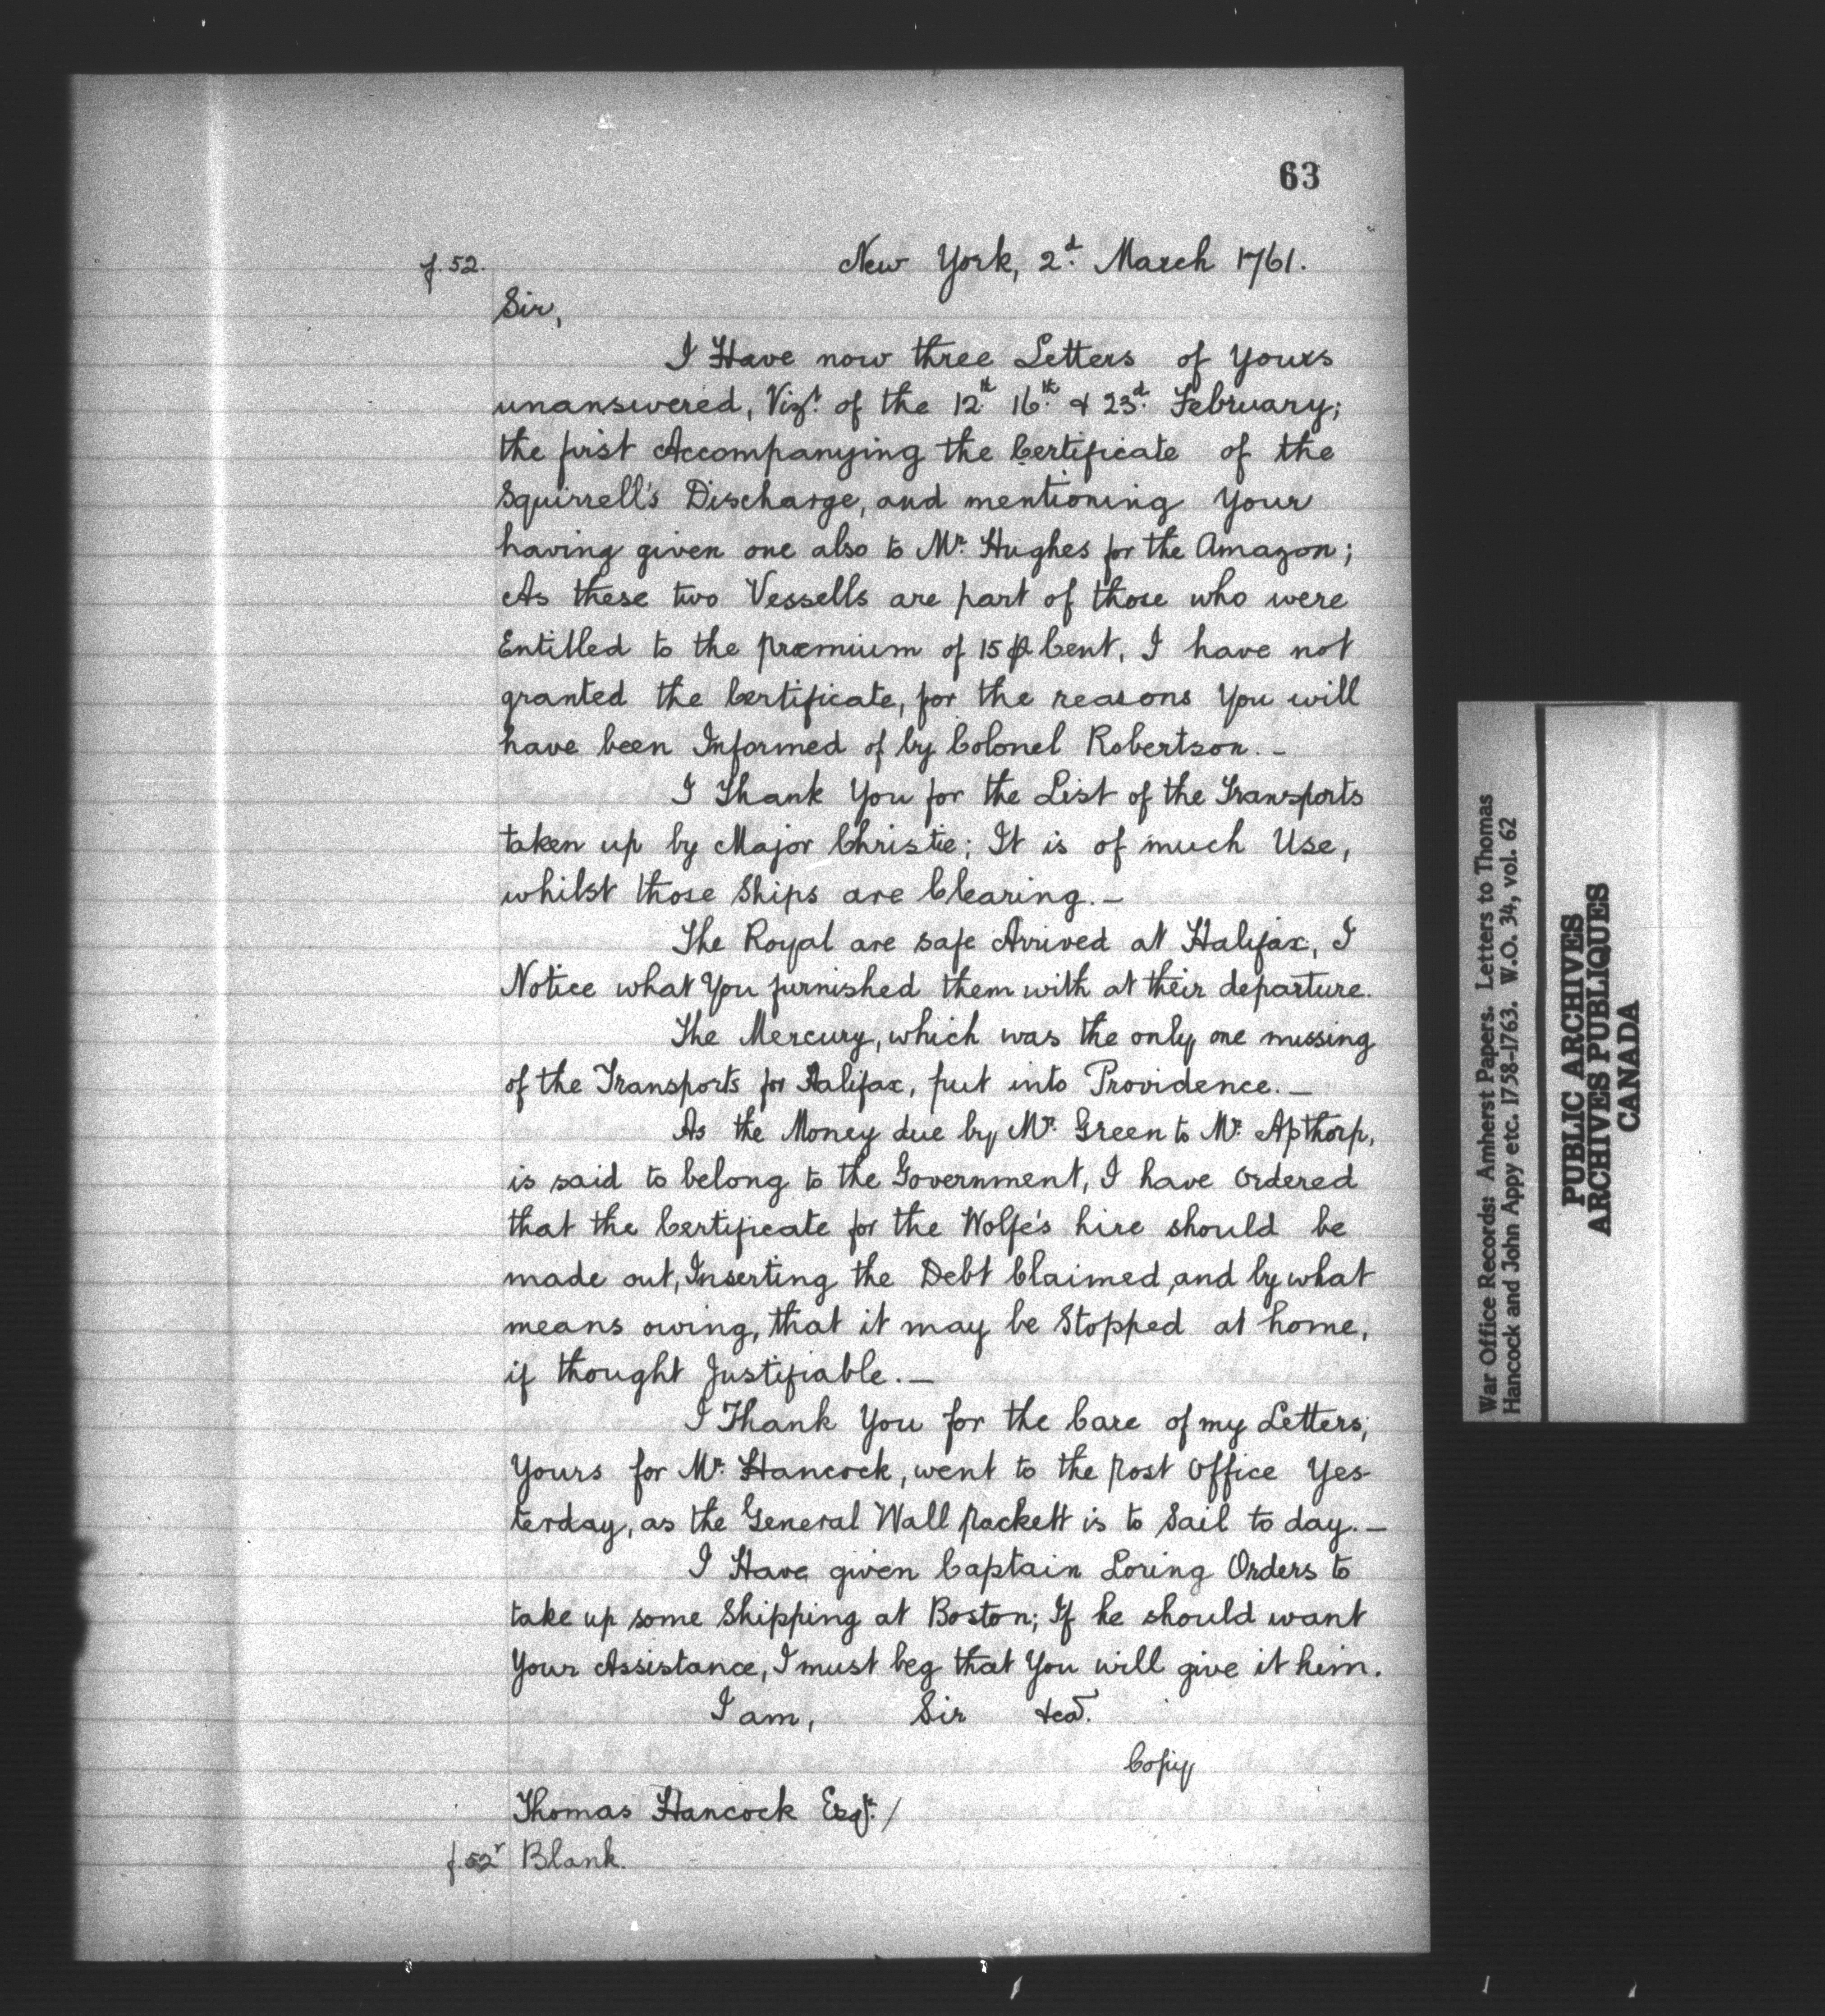 63
f. 52. New York, 2d. March 1761.
Sir,
I Have now three Letters of Yours
unanswered, Vizt. of the 12th. 16th. & 23d. February;
the first Accompanying the Certificate of the
Squirrell's Discharge, and mentioning Your
having given one also to Mr. Hughes for the Amazon;
As these two Vessells are part of those who were
Entitled to the præmium of 15 ⅌ Cent, I have not
granted the Certificate, for the reasons You will
have been Informed of by Colonel Robertson. —
I Thank You for the List of the Transports
taken up by Major Christie; It is of much Use,
whilst those Ships are Clearing. —
The Royal are safe Arrived at Halifax, I
Notice what You furnished them with at their departure.
The Mercury, which was the only one missing
of the Transports for Halifax, put into Providence. —
As the Money due by Mr. Green to Mr. Apthorp,
is said to belong to the Government, I have Ordered
that the Certificate for the Wolfe's hire should be
made out, Inserting the Debt Claimed, and by what
means owing, that it may be Stopped at home,
if thought Justifiable. —
I Thank You for the Care of my Letters;
Yours for Mr. Hancock, went to the post Office Yes-
terday, as the General Wall packett is to Sail to day. —
I Have given Captain Loring Orders to
take up some Shipping at Boston; If he should want
Your Assistance, I must beg that You will give it him.
I am, Sir &ca.
Copy
Thomas Hancock Esqr. /
f. 52v Blank.
War Office Records: Amherst Papers. Letters to Thomas
Hancock and John Appy etc. 1758-1763. W.O. 34, vol. 62
PUBLIC ARCHIVES
ARCHIVES PUBLIQUES
CANADA